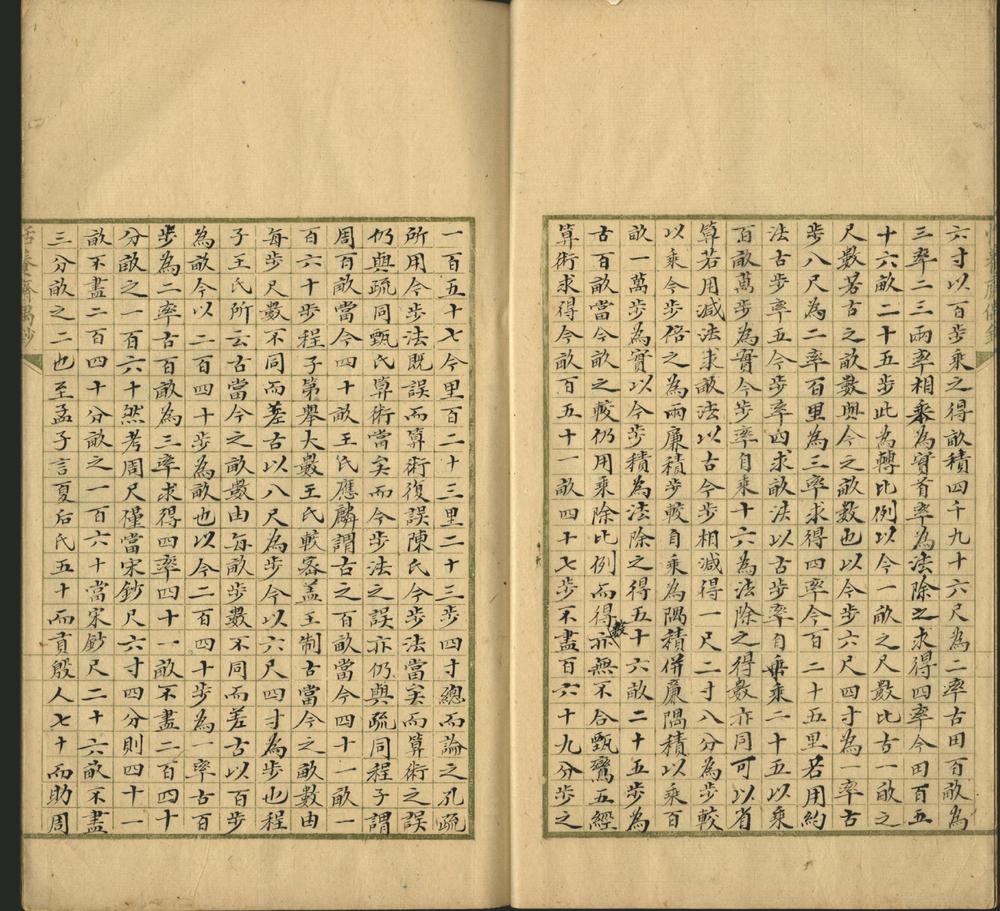 六寸以百步乘之得畝積四千九十六尺為二率古田百畝為
三率二三兩率相乘為實首率為法除之求得四率今田百五
十六畝二十五步此為轉比例以今一畝之尺數比古一畝之
尺數若古之畝數與今之畝數也以今步六尺四寸為一率古
步八尺為二率百里為三率求得四率今百二十五里若用約
法古步率五今步率四求畝法以古步率自乘二十五以乘
百畝萬步為實今步率自乘十六為法除之得數亦同可以省
算若用減法求畝法以古今步相減得一尺二寸八分為步較
以乘今步倍之為兩廉積步較自乘為隅積併廉隅積以乘百
畝一萬步為實以今步積為法除之得五十六畝二十五步為
古百畝當今畝之較仍用乘除比例而得數亦無不合甄鸞五經
算術求得今畝百五十一畝四十七步不盡百六十九分步之
一百五十七今里百二十三里二十三步四寸總而論之孔疏
所用今步法既誤而算術復誤陳氏今步法當矣而算術之誤
仍與疏同甄氏算術當矣而今步法之誤亦仍與疏同程子謂
周百畝當今四十畝王氏應麟謂古之百畝當今四十一畝一
百六十步程子第舉大數王氏較密蓋王制古當今之畝數由
每步尺數不同而差古以八尺為步今以六尺四寸為步也程
子王氏所云古當今之畝數由每畝步數不同而差古以百步
為畝今以二百四十步為畝也以今二百四十步為一率古百
步為二率古百畝為三率求得四率四十一畝不盡二百四十
分畝之一百六十然考周尺僅當宋鈔尺六寸四分則四十一
畝不盡二百四十分畝之一百六十當宋鈔尺二十六畝不盡
三分畝之二也至孟子言夏后氏五十而貢殷人七十而助周